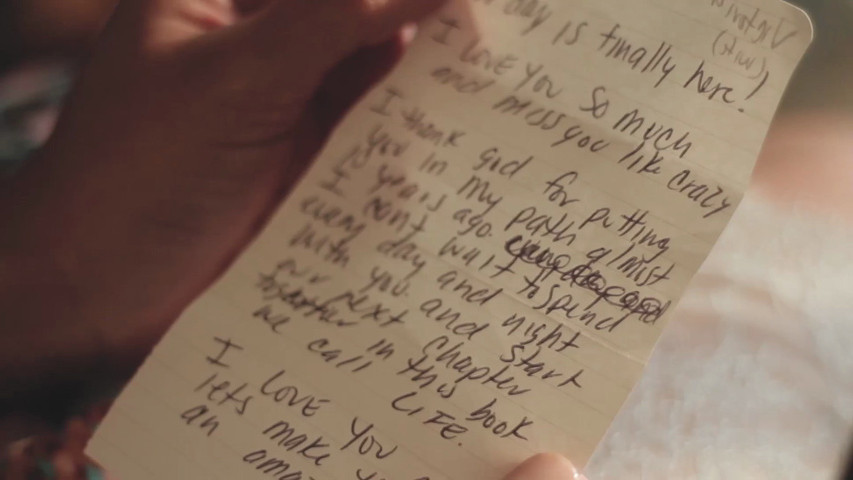 day is finally here!
I LOVE YOU SO MUCH
and miss you like crazy
I thank god for putting
you in my path almost
15 years ago.
I can't wait to spend
every day and night
with you. and start
our next chapter
together in this book
we call LIFE.
I LOVE YOU
lets make
an